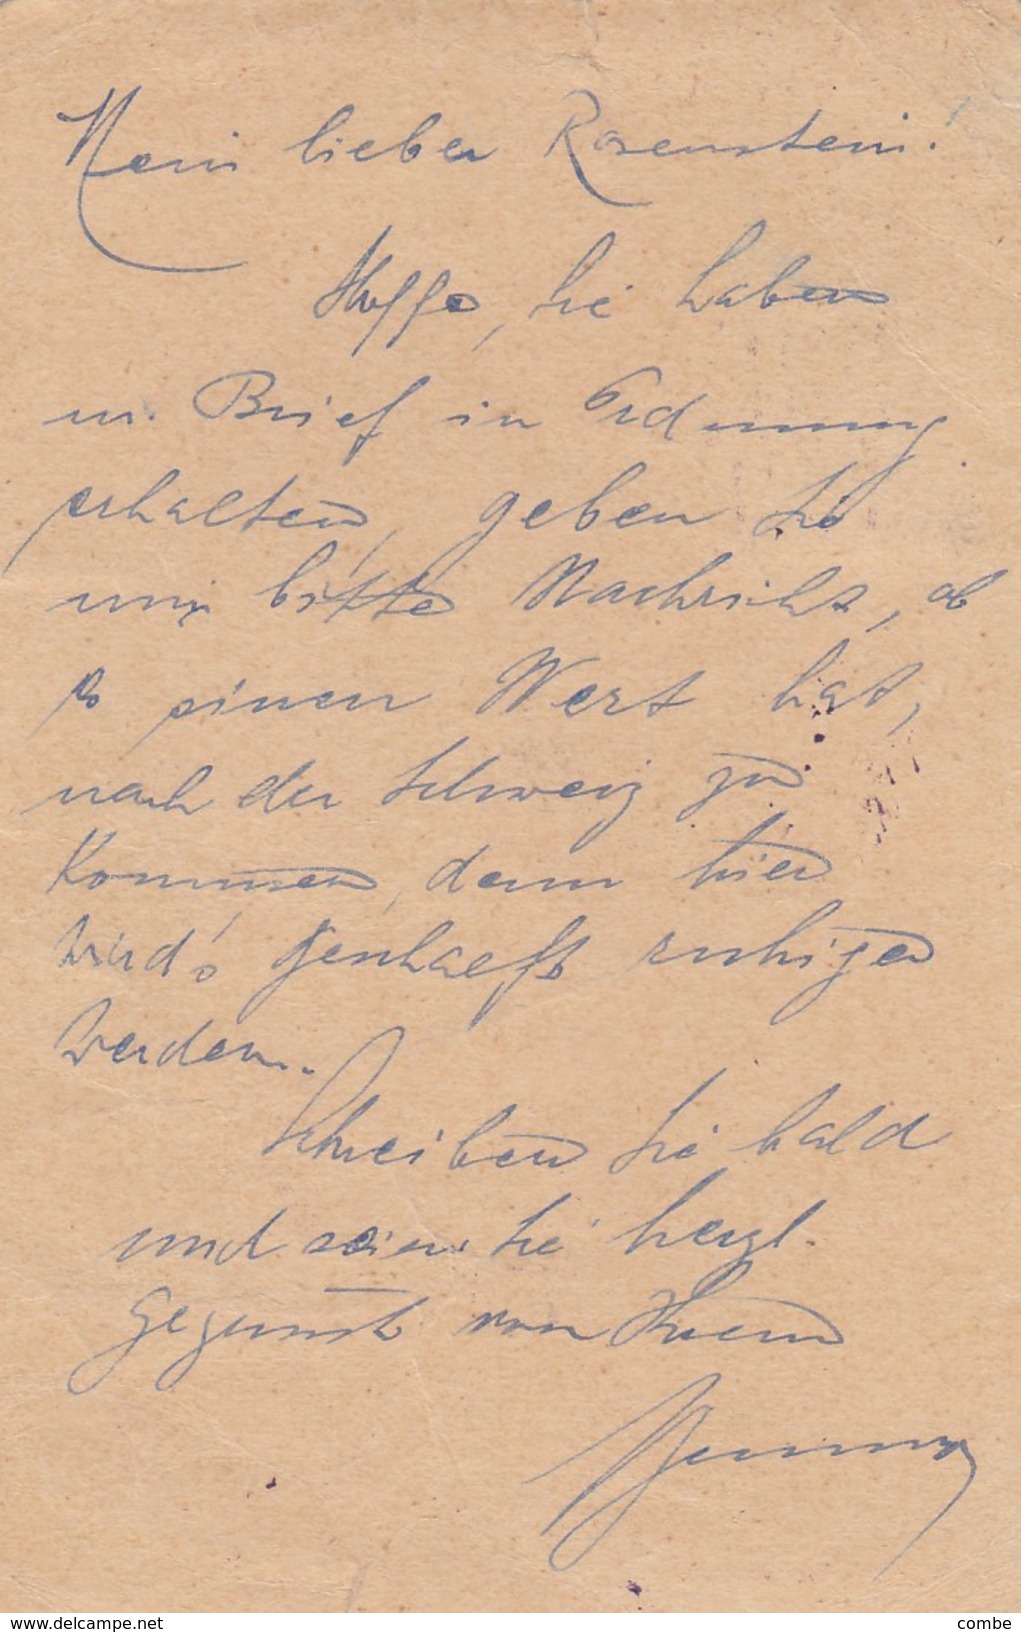 Mein lieber Rosenstein!
Hoffe, Sie haben
m. Brief in Ordnung
erhalten, geben Sie
mir bitte Nachricht, ob
es einen Wert hat,
nach der Schweiz zu
kommen, denn hier
wird's geschaeftl. ruhiger
werden.
Schreiben Sie bald
und seien Sie herzl.
gegruesst von Ihrem
www.delcampe.net
combe